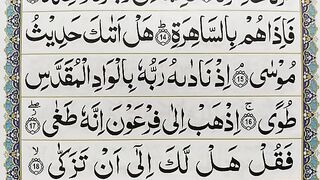 فَاِذَا هُمۡ بِالسَّاهِرَةِ ؕ‏ ﴿14﴾ هَلۡ اَتٰٮكَ حَدِيۡثُ
مُوۡسٰى‌ۘ ﴿15﴾ اِذۡ نَادٰٮهُ رَبُّهٗ بِالۡوَادِ الۡمُقَدَّسِ
طُوًى‌ۚ ﴿16﴾ اِذۡهَبۡ اِلٰى فِرۡعَوۡنَ اِنَّهٗ طَغٰى ۖ ﴿17﴾
فَقُلۡ هَلۡ لَّكَ اِلٰٓى اَنۡ تَزَكّٰى ۙ ﴿18﴾